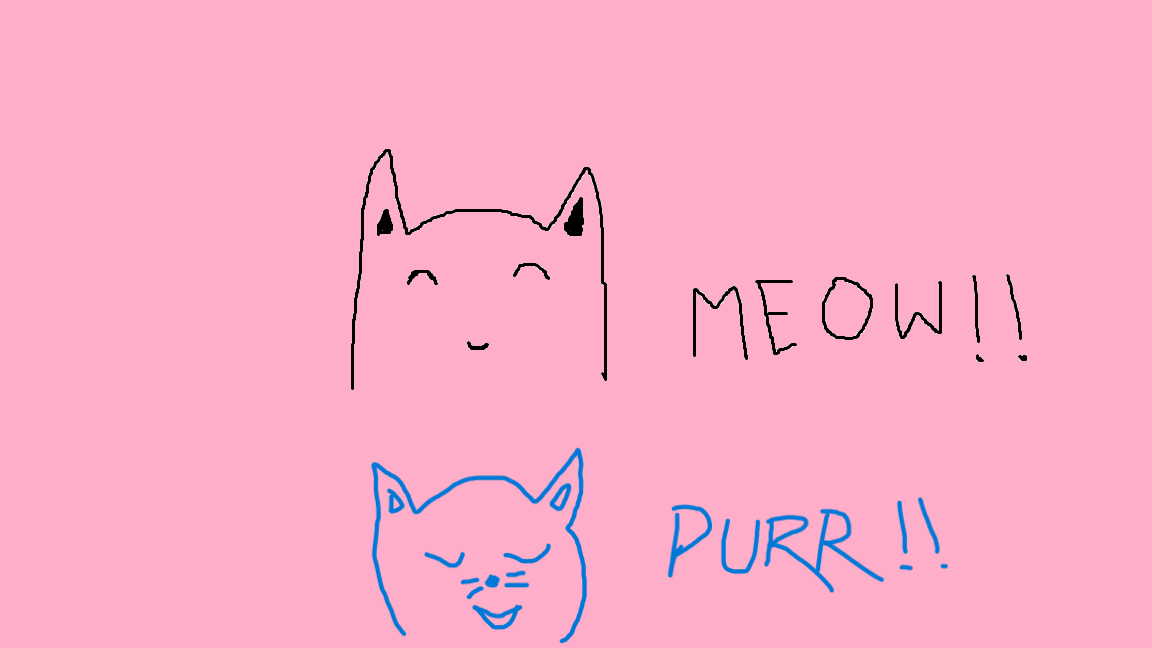 MEOW!!
PURR!!